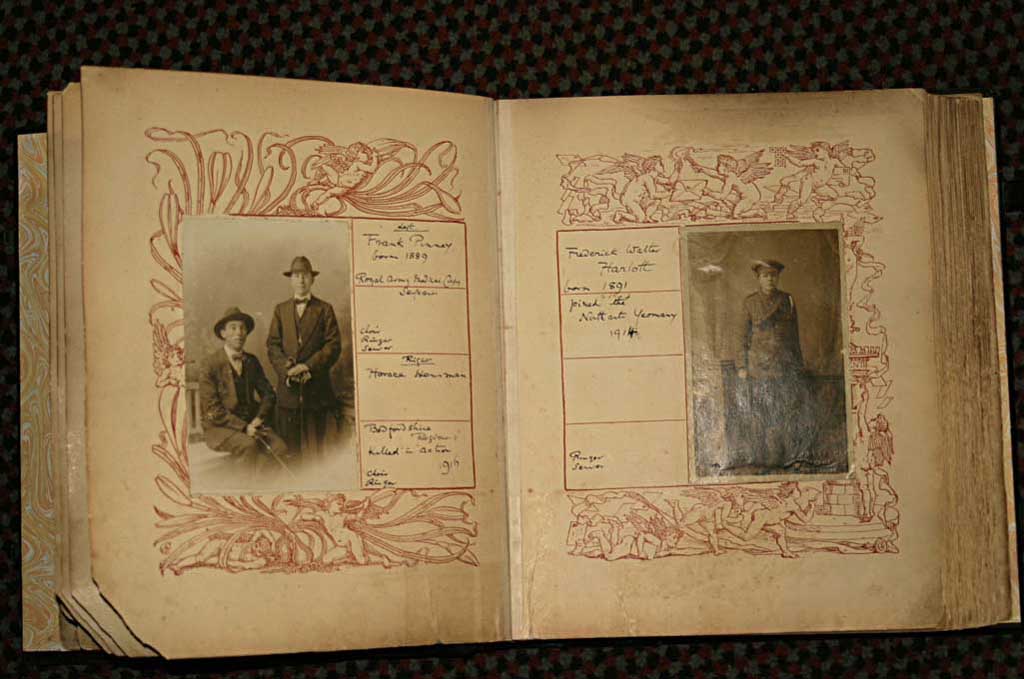 Left
Frank Pinney
born 1889
Royal Army Medical Corps
Choir
Ringer
Server
Right
Horace
Bedfordshire
Killed in Action
Choir
Ringer
Frederick Walter
born 1891
joined the
Yeomanry
1914
Ringer
Server